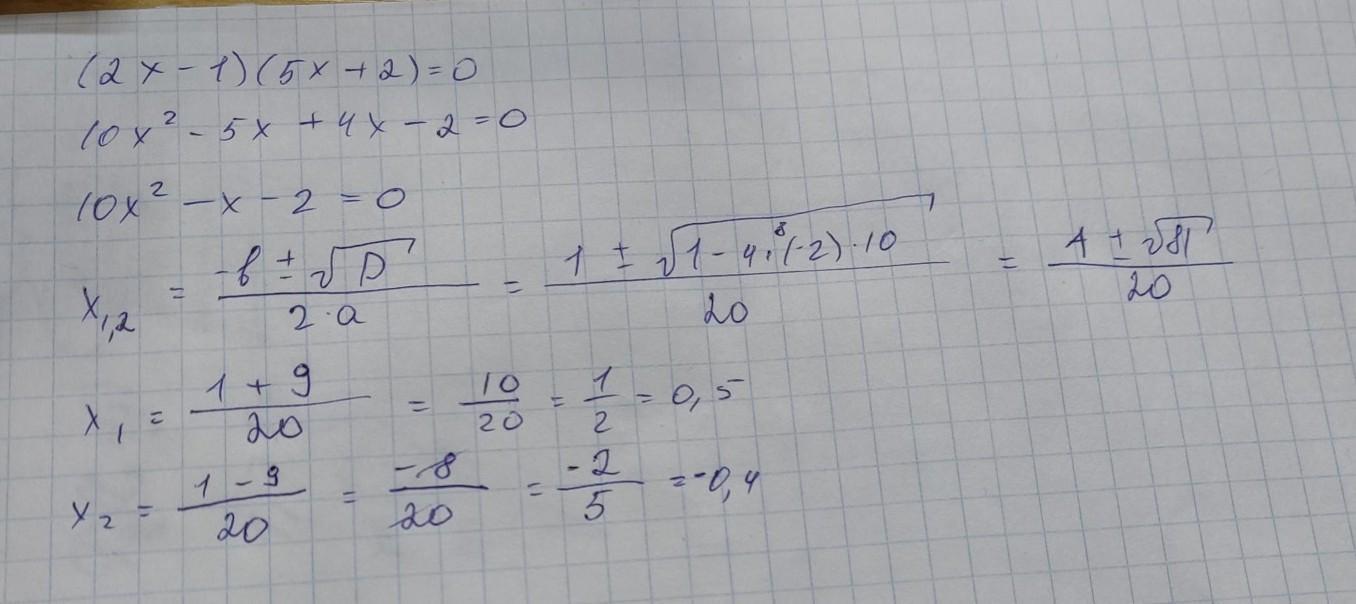 (2x-1)(5x+2)=0
10x² - 5x + 4x - 2 = 0
10x² - x - 2 = 0
x₁,₂ = (-b ± √D)/(2·a) = (1 ± √(1-4·(-2)·10))/20 = (1 ± √81)/20
x₁ = (1+9)/20 = 10/20 = 1/2 = 0,5
x₂ = (1-9)/20 = -8/20 = -2/5 = -0,4